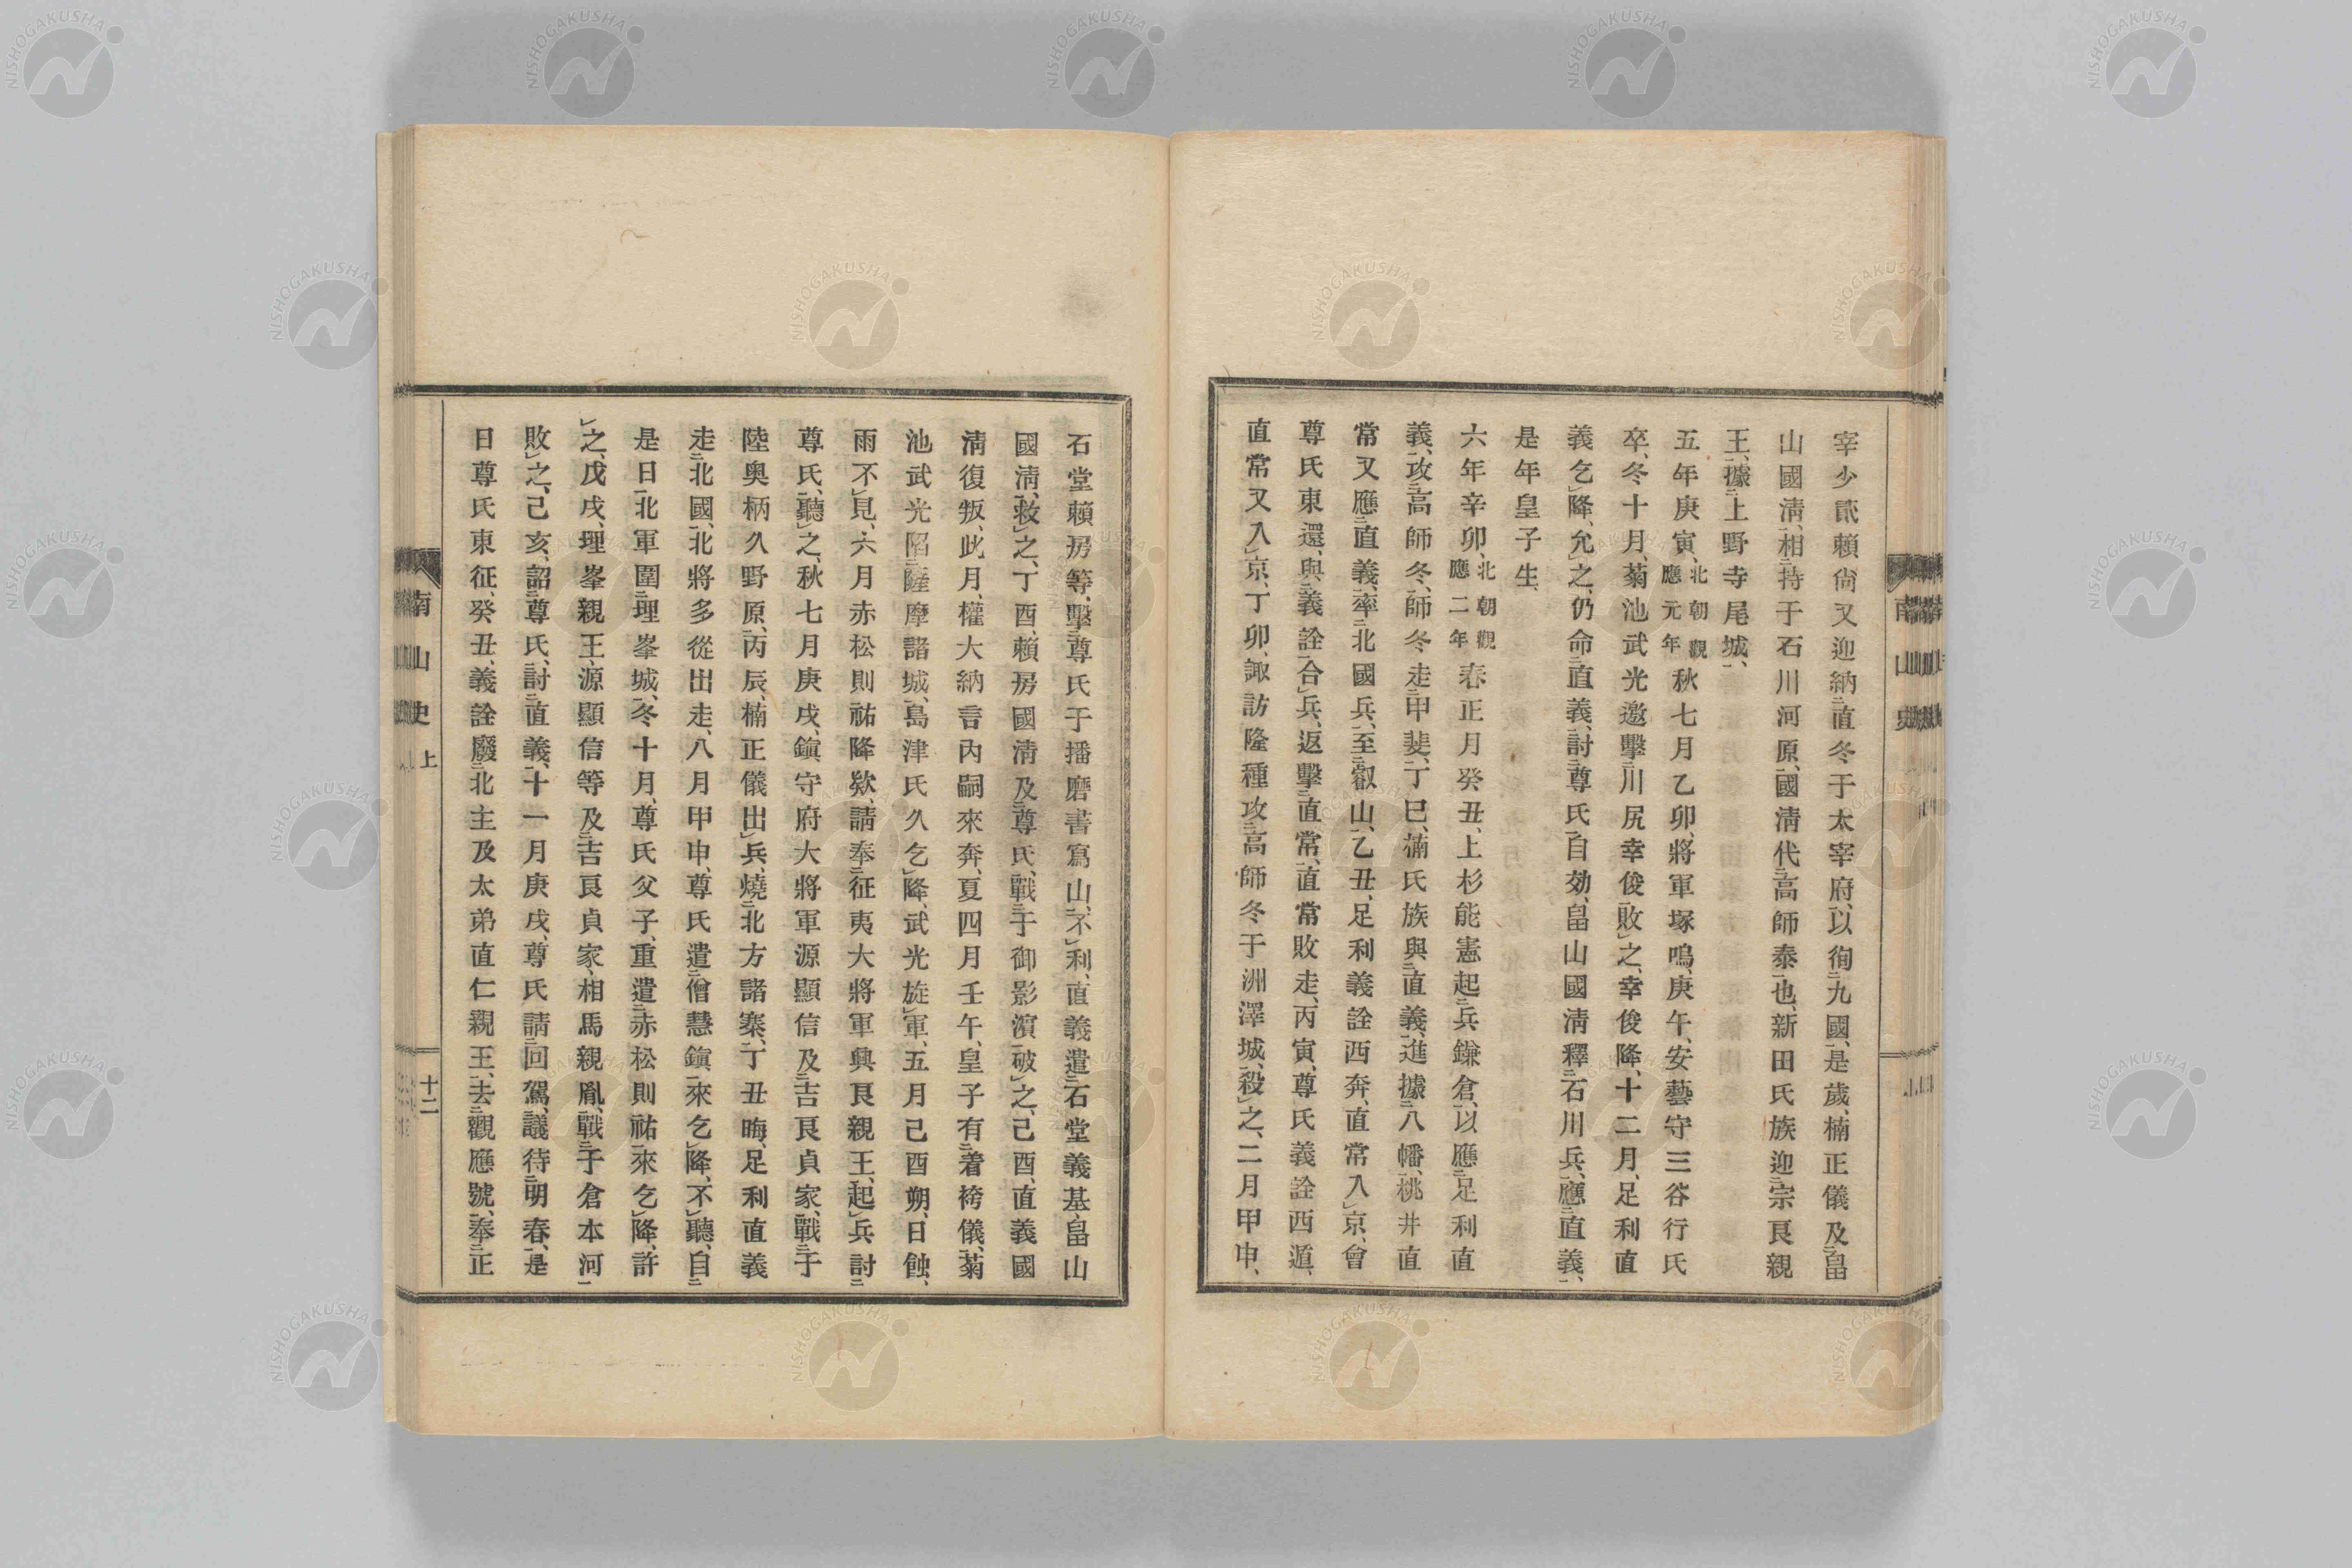 宰少貳賴尙又迎納直冬于太宰府、以徇九國、是歲、楠正儀及畠
山國淸、相持于石川河原、國淸代高師泰也、新田氏族迎宗良親
王、據上野寺尾城、
五年庚寅、北朝觀應元年秋七月乙卯、將軍塚鳴、庚午、安藝守三谷行氏
卒、冬十月、菊池武光邀擊川尻幸俊、敗之、幸俊降、十二月、足利直
義乞降、允之、仍命直義、討尊氏自効、畠山國淸釋石川兵、應直義、
是年皇子生、
六年辛卯、北朝觀應二年春正月癸丑、上杉能憲起兵鎌倉、以應足利直
義、攻高師冬、師冬走甲斐、丁巳、楠氏族與直義、進據八幡、桃井直
常又應直義、率北國兵、至叡山、乙丑、足利義詮西奔、直常入京、會
尊氏東還、與義詮合兵、返擊直常、直常敗走、丙寅、尊氏義詮西遁、
直常又入京、丁卯、諏訪隆種攻高師冬于洲澤城、殺之、二月甲申、
石堂賴房等、擊尊氏于播磨書寫山、不利、直義遣石堂義基、畠山
國淸、救之、丁酉、賴房國淸及尊氏、戰于御影濱、破之、己酉、直義國
淸復叛、此月、權大納言內嗣來奔、夏四月壬午、皇子有着袴儀、菊
池武光陷薩摩諸城、島津氏久乞降、武光旋軍、五月己酉朔、日蝕、
雨不見、六月赤松則祐降欵、請奉征夷大將軍興良親王、起兵討
尊氏、聽之、秋七月庚戌、鎭守府大將軍源顯信及吉良貞家、戰于
陸奧柄久野原、丙辰、楠正儀出兵、燒北方諸寨、丁丑晦、足利直義
走北國、北將多從出走、八月甲申、尊氏遣僧慧鎭來乞降、不聽、自
是日北軍圍理峯城、冬十月、尊氏父子、重遣赤松則祐來乞降、許
之、戊戌、理峯親王、源顯信等及吉良貞家、相馬親胤、戰于倉本河、
敗之、己亥、詔尊氏、討直義、十一月庚戌、尊氏請回駕、議待明春、是
日尊氏東征、癸丑、義詮廢北主及太弟直仁親王、去觀應號、奉正
南山史
上
十二
南山史
NISHOGAKUSHA